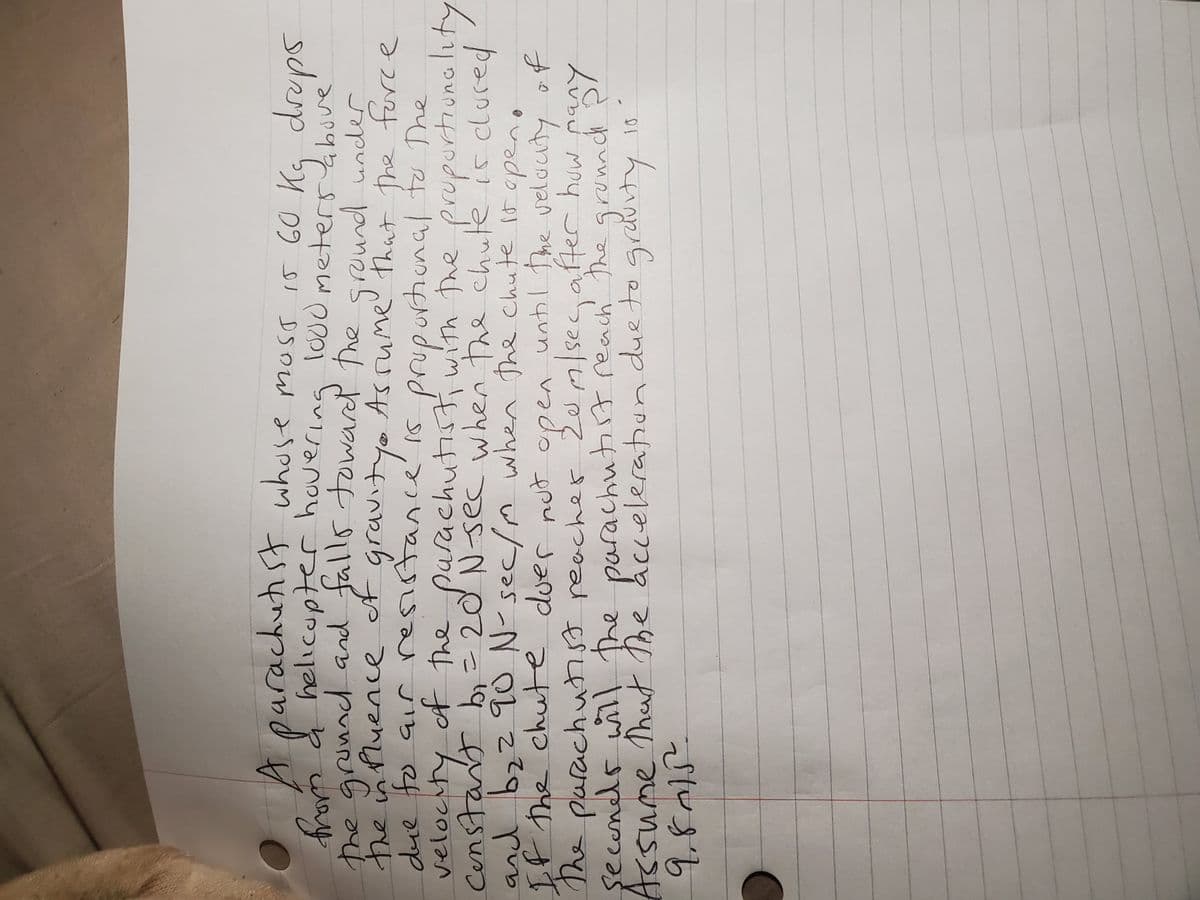 A parachutist whose mass is 60 Kg drops
from a helicopter hovering 1000 meters above
the ground and falls toward the ground under
the influence of gravity. Assume that the force
due to air resistance is proportional to the
velocity of the parachutist, with the proportionality
constant b1 = 20 N-sec when the chute is closed
and b2 = 90 N-sec/m when the chute is open.
If the chute does not open until the velocity of
the parachutist reaches 20 m/sec, after how many
seconds will the parachutist reach the ground
Assume that the acceleration due to gravity is
9.8 m/s².